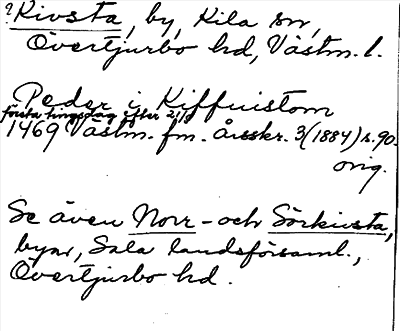 ? Kivsta, by, Kila sn,
Övertjurbo hd, Västm. l.
Peder i Kiffuistom
första tingsdag efter 21/9
1469 Västm. fm. årsskr. 3(1884) s. 90.
orig.
Se även Norr- och Sörkivsta,
byar, Sala landsförsaml.,
Övertjurbo hd.